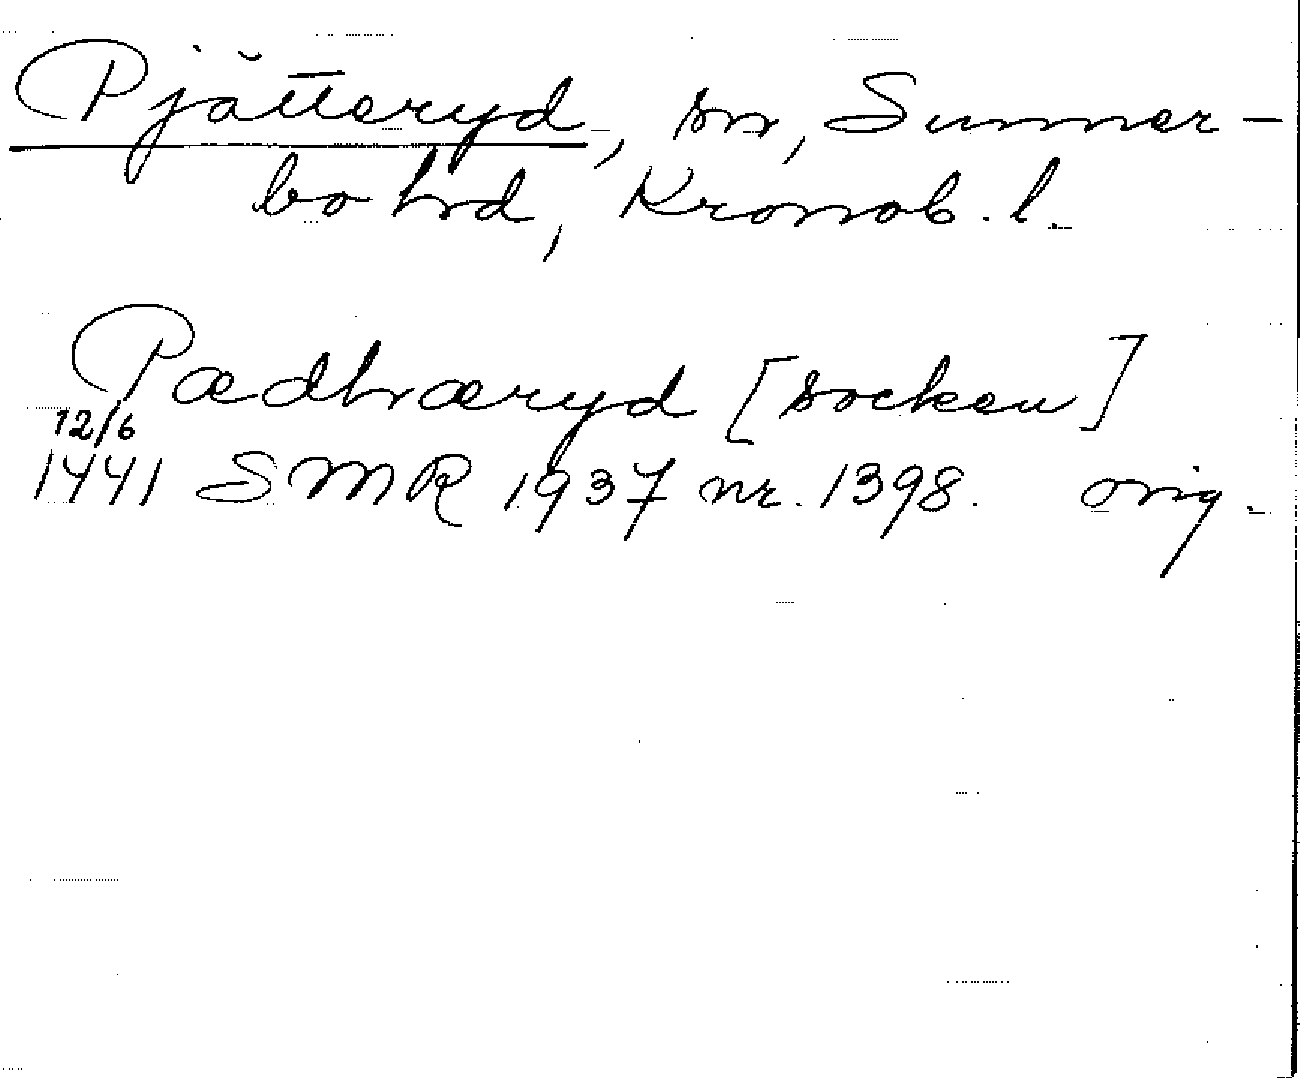 Pjätteryd, sn, Sunner-
bo hrd, Kronob. l.
Pædhræryd [socken]
12/6
1441 SMR 1937 nr. 1398. orig.